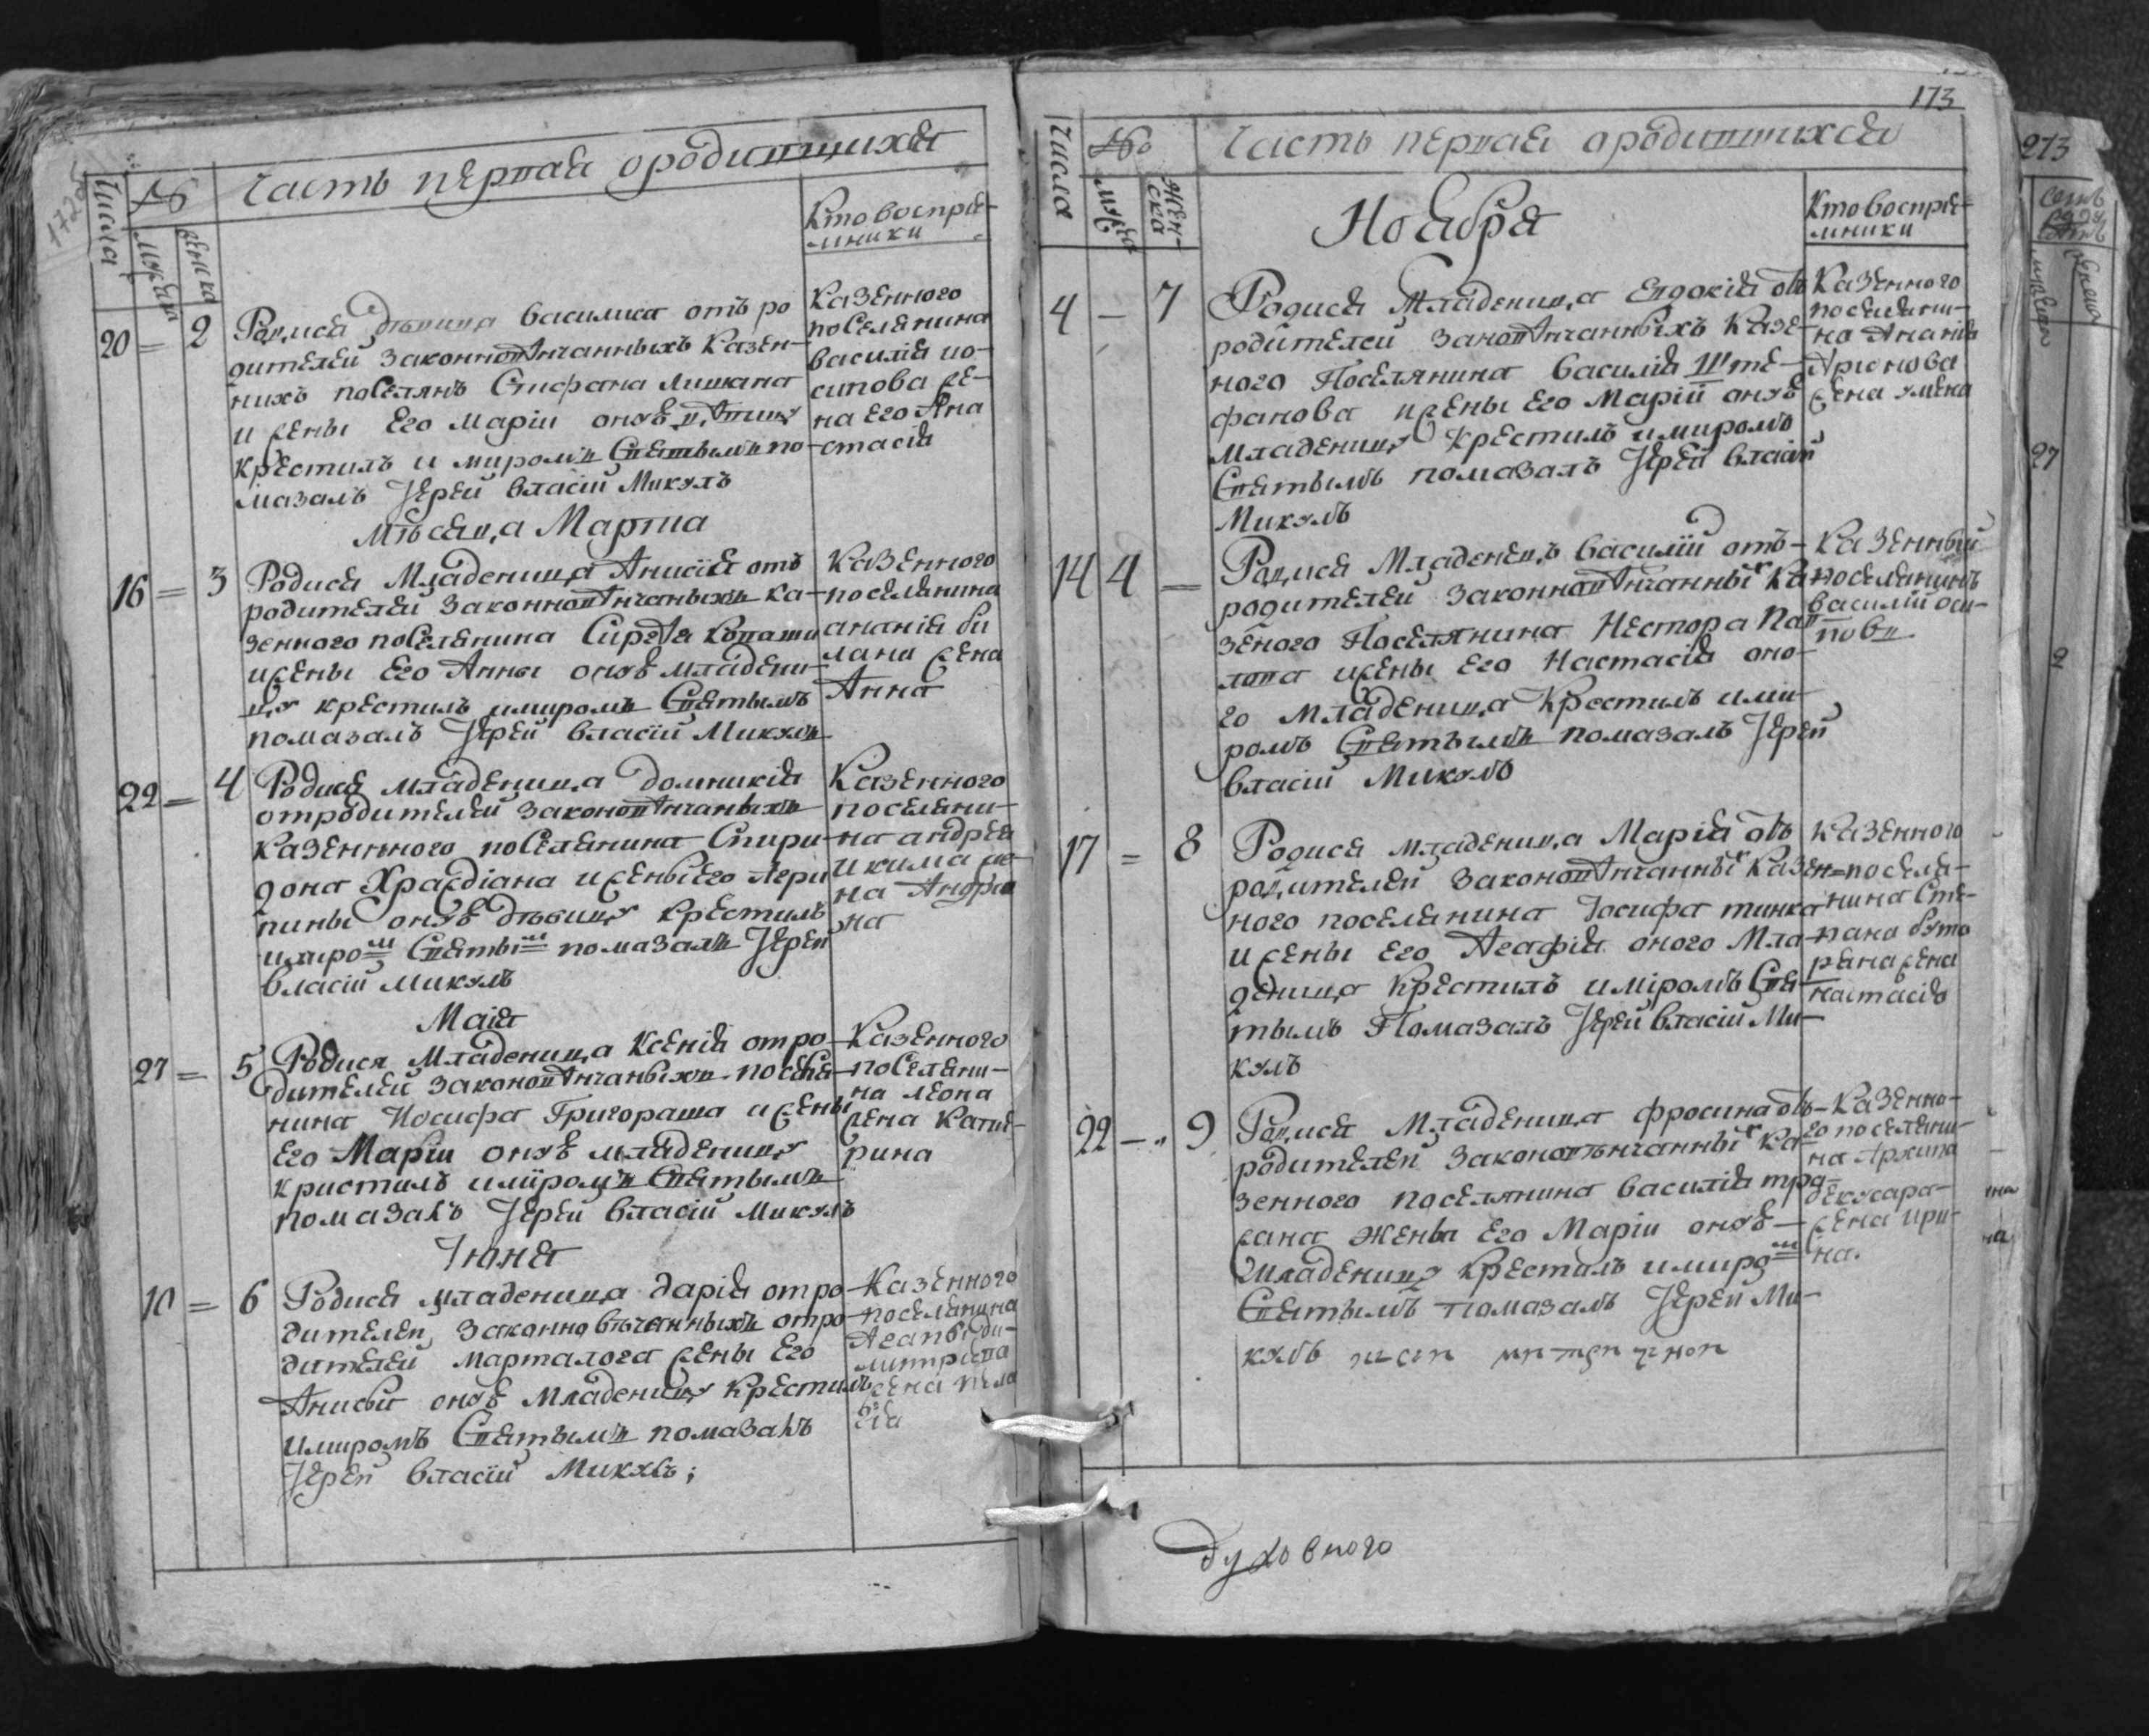 Часть первая ородившихся
Числа
№
мужеска
женска
Кто воспрiе-
мники
20 = 2
Родися дѣвица василика отъ ро
дителей законновѣнчанныхъ казен-
нихъ поселянъ Стефана Лишкана
и жены Его Марiи онуѣ дѣвицу
крестилъ и миромъ Святымъ по-
мазалъ Iерей власiй Микулъ
Казенного
поселянина
василiя ио-
сипова же-
на его Ана
стасiя
мѣсяца Марта
16 = 3
Родися Младеница Анисiя отъ
родителей законновѣнчаныхъ ка-
зенного поселянина Сиргѣя
ижены Его Анны онуѣ младени-
цу крестилъ имиромъ Святымъ
помазалъ Iерей власiй Микулъ
казенного
поселянина
ананiя би
лани жена
Анна
22 = 4
Родися младеница домникiя
отродителей законовѣнчаныхъ
казеннного поселянина Спири-
дона Храждiана иженыЕго Агри
пины онуѣ дѣвицу крестилъ
имиромъ Святымъ помазалъ Iерей
власiй микулъ
Казенного
поселяни-
на андрея
икима же-
на Андрiя
на
Маiя
27 = 5
Родися Младеница Ксенiя отро-
дителей законовѣнчаныхъ поселя-
нина Иосифа Григораша ижены
Его Марiи онуѣ младеницу
кристилъ имiромъ Святымъ
помазалъ Iерей власiй микулъ
Казенного
поселяни-
на леона
жена кате-
рина
Iюня
10 = 6
Родися младеница дарiя отро-
дителей, законно вѣчанныхъ отро-
дителей марталога жены Его
Анисьи онуѣ младеницу крестилъ
имиромъ Святымъ помазалъ
Iерей власiй Микулъ;
Казенного
поселянина
Агапiя ди-
митрiева
жена пела
гiя
173
Часть первая ородившихся
Числа
№
мужеска
жен-
ска
Ноября
Кто воспрiе-
мники
4 — 7
Родися Младеница Евдокiя отъ
родителей зановѣнчанныхъ казе-
ного Поселянина василiя Ште-
фанова ижены Его Марiй онуѣ
младеницу крестилъ имиромъ
Святымъ помазалъ Iерей власiй
Микулъ
Казенного
поселяни-
на Ананiя
Арионова
жена улена
14 4 —
Родися Младенецъ василiй отъ-
родителей законновѣнчанныхъ ка
зеного Поселянина Нестора Пав
лова ижены Его Настасiя оно-
го младеница крестилъ ими-
ромъ Святымъ помазалъ Iерей
власiй Микулъ
казенный
поселянинъ
василiй оси-
повъ
17 = 8
Родися младеница Марiя отъ
родителей законовѣнчанныхъ казен=
ного поселянина Iосифа тинка
ижены Его Агафiя оного Мла-
деница крестилъ имiромъ Свя-
тымъ Помазалъ Iерей власiй Ми-
кулъ
казенного
поселя-
нина Сте-
пана буто
ряна жена
настасiя
22 — „ 9
Родися Младеница фросина отъ-
родителей законовѣнчанныхъ ка-
зенного поселянина василiя
жана жены Его Марiи онуѣ-
младеницу крестилъ имиромъ
Святымъ помазалъ Iерей Ми-
кулъ
Казенно-
го поселяни-
на Архипа
жена ири-
на.
духовного